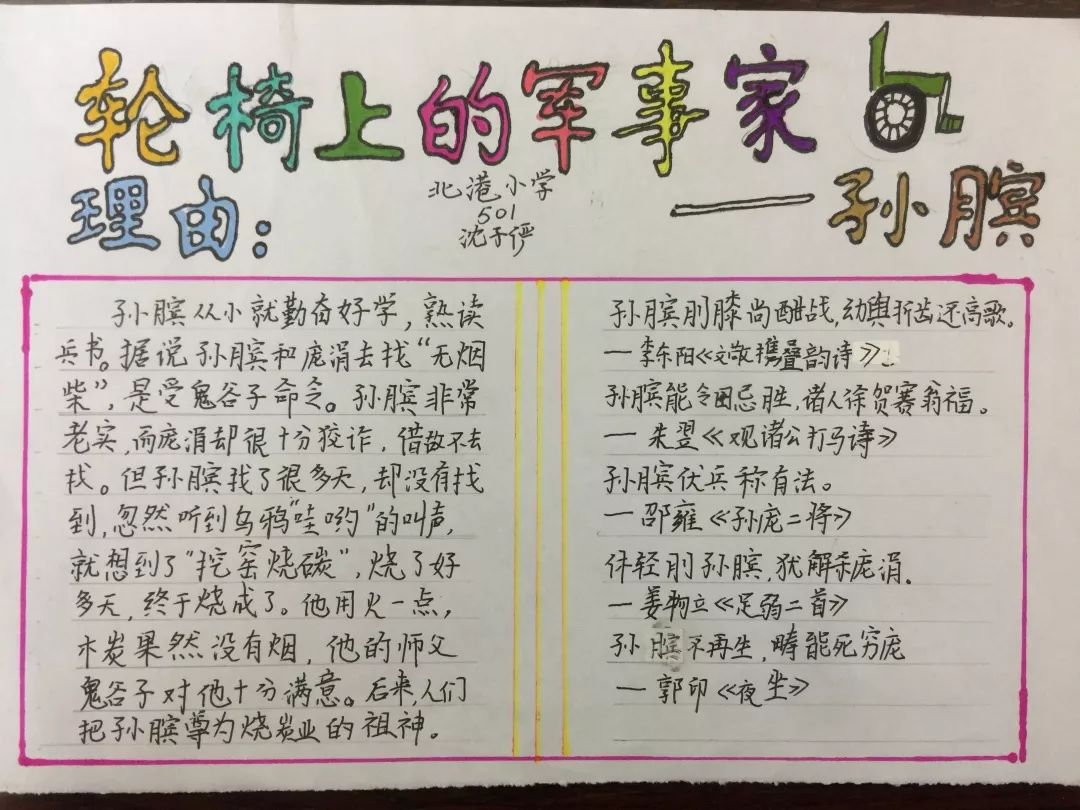 轮椅上的军事家
——孙膑
理由：
北港小学
501
沈子俨
孙膑从小就勤奋好学，熟读
兵书。据说孙膑和庞涓去找“无烟
柴”，是受鬼谷子命令。孙膑非常
老实，而庞涓却很十分狡诈，借故不去
找。但孙膑找了很多天，却没有找
到，忽然听到乌鸦“哇哟”的叫声，
就想到了“挖窑烧碳”，烧了好
多天，终于烧成了。他用火一点，
木炭果然没有烟，他的师父
鬼谷子对他十分满意。后来，人们
把孙膑尊为烧炭业的祖神。
孙膑刖膝尚酣战，幼舆折齿还高歌。
—李东阳《文敬携叠韵诗》
孙膑能令田忌胜，诸人徐贺赛翁福。
—朱翌《观诸公打马诗》
孙膑伏兵称有法。
—邵雍《孙庞二将》
体轻刖孙膑，犹解杀庞涓.
—姜特立《足弱二首》
孙膑不再生，畴能死穷庞
—郭印《夜坐》